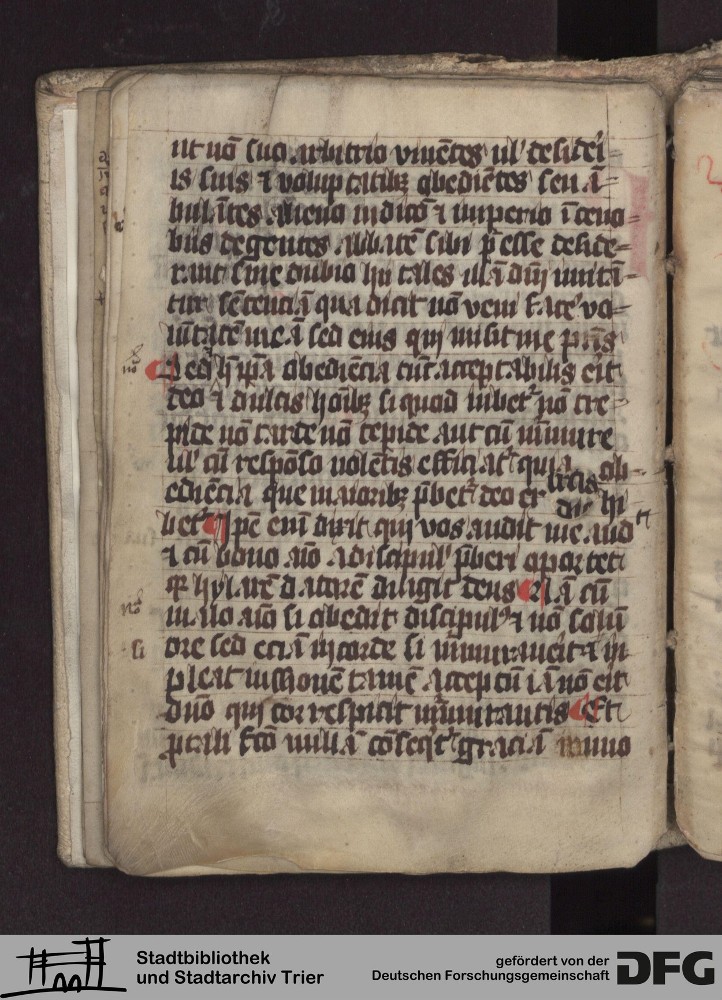 ut nō suo arbitrio viuētes ul' desid'i
is suis ⁊ voluptatibꝫ obediētes seu ā=
bulātes alieno iudicō ⁊ imperio ī ceno=
biis degentes abbatē sibi p̄esse deside=
rant sine dubio hii tales illā dn̄i imitā=
tur sētenciā qua dicit nō veni face' vo=
lūtatē meā sed eius qui misit me pr̄is
Sed h̄ ip̄a obediēcia tūc acceptabilis eīt
deo ⁊ dulcis hoī̄bꝫ si quod iubet' nō tre=
pide nō tarde nō tepide aut cū m̄mure
ul' cū respōso nolētis efficiat' quia ob=
ediēcia que maioribꝫ p̄bet' deo ex
hi
bet' Ip̄e enī dixit qui vos audit me aud'
⁊ cū bono aīo a discipul' p̄beri oportet
qꝛ hylarē datorē diligit deus Nā cū
malo aīo si obedit discipul' ⁊ nō solū
ore sed eciā in corde si m̄murau'it ⁊ im
si
pleat iussionē tamē acceptū iā nō eīt
deo qui cor respicit m̄murantis Et
ꝓ tali fc̄o nullā cōseqt' graciā immo
Stadtbibliothek
und Stadtarchiv Trier
gefördert von der
Deutschen Forschungsgemeinschaft
DFG